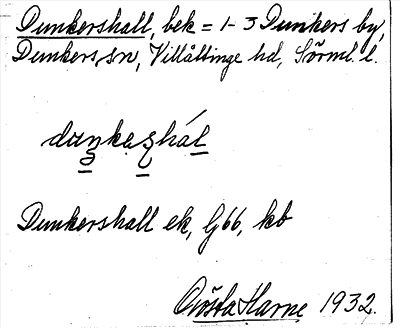 Dunkershall, bek = 1-3 Dunkers by,
Dunkers sn, Villåttinge hd, Sörml. l.
Dunkershall ek, G66, kb
Gösta Harne 1932.